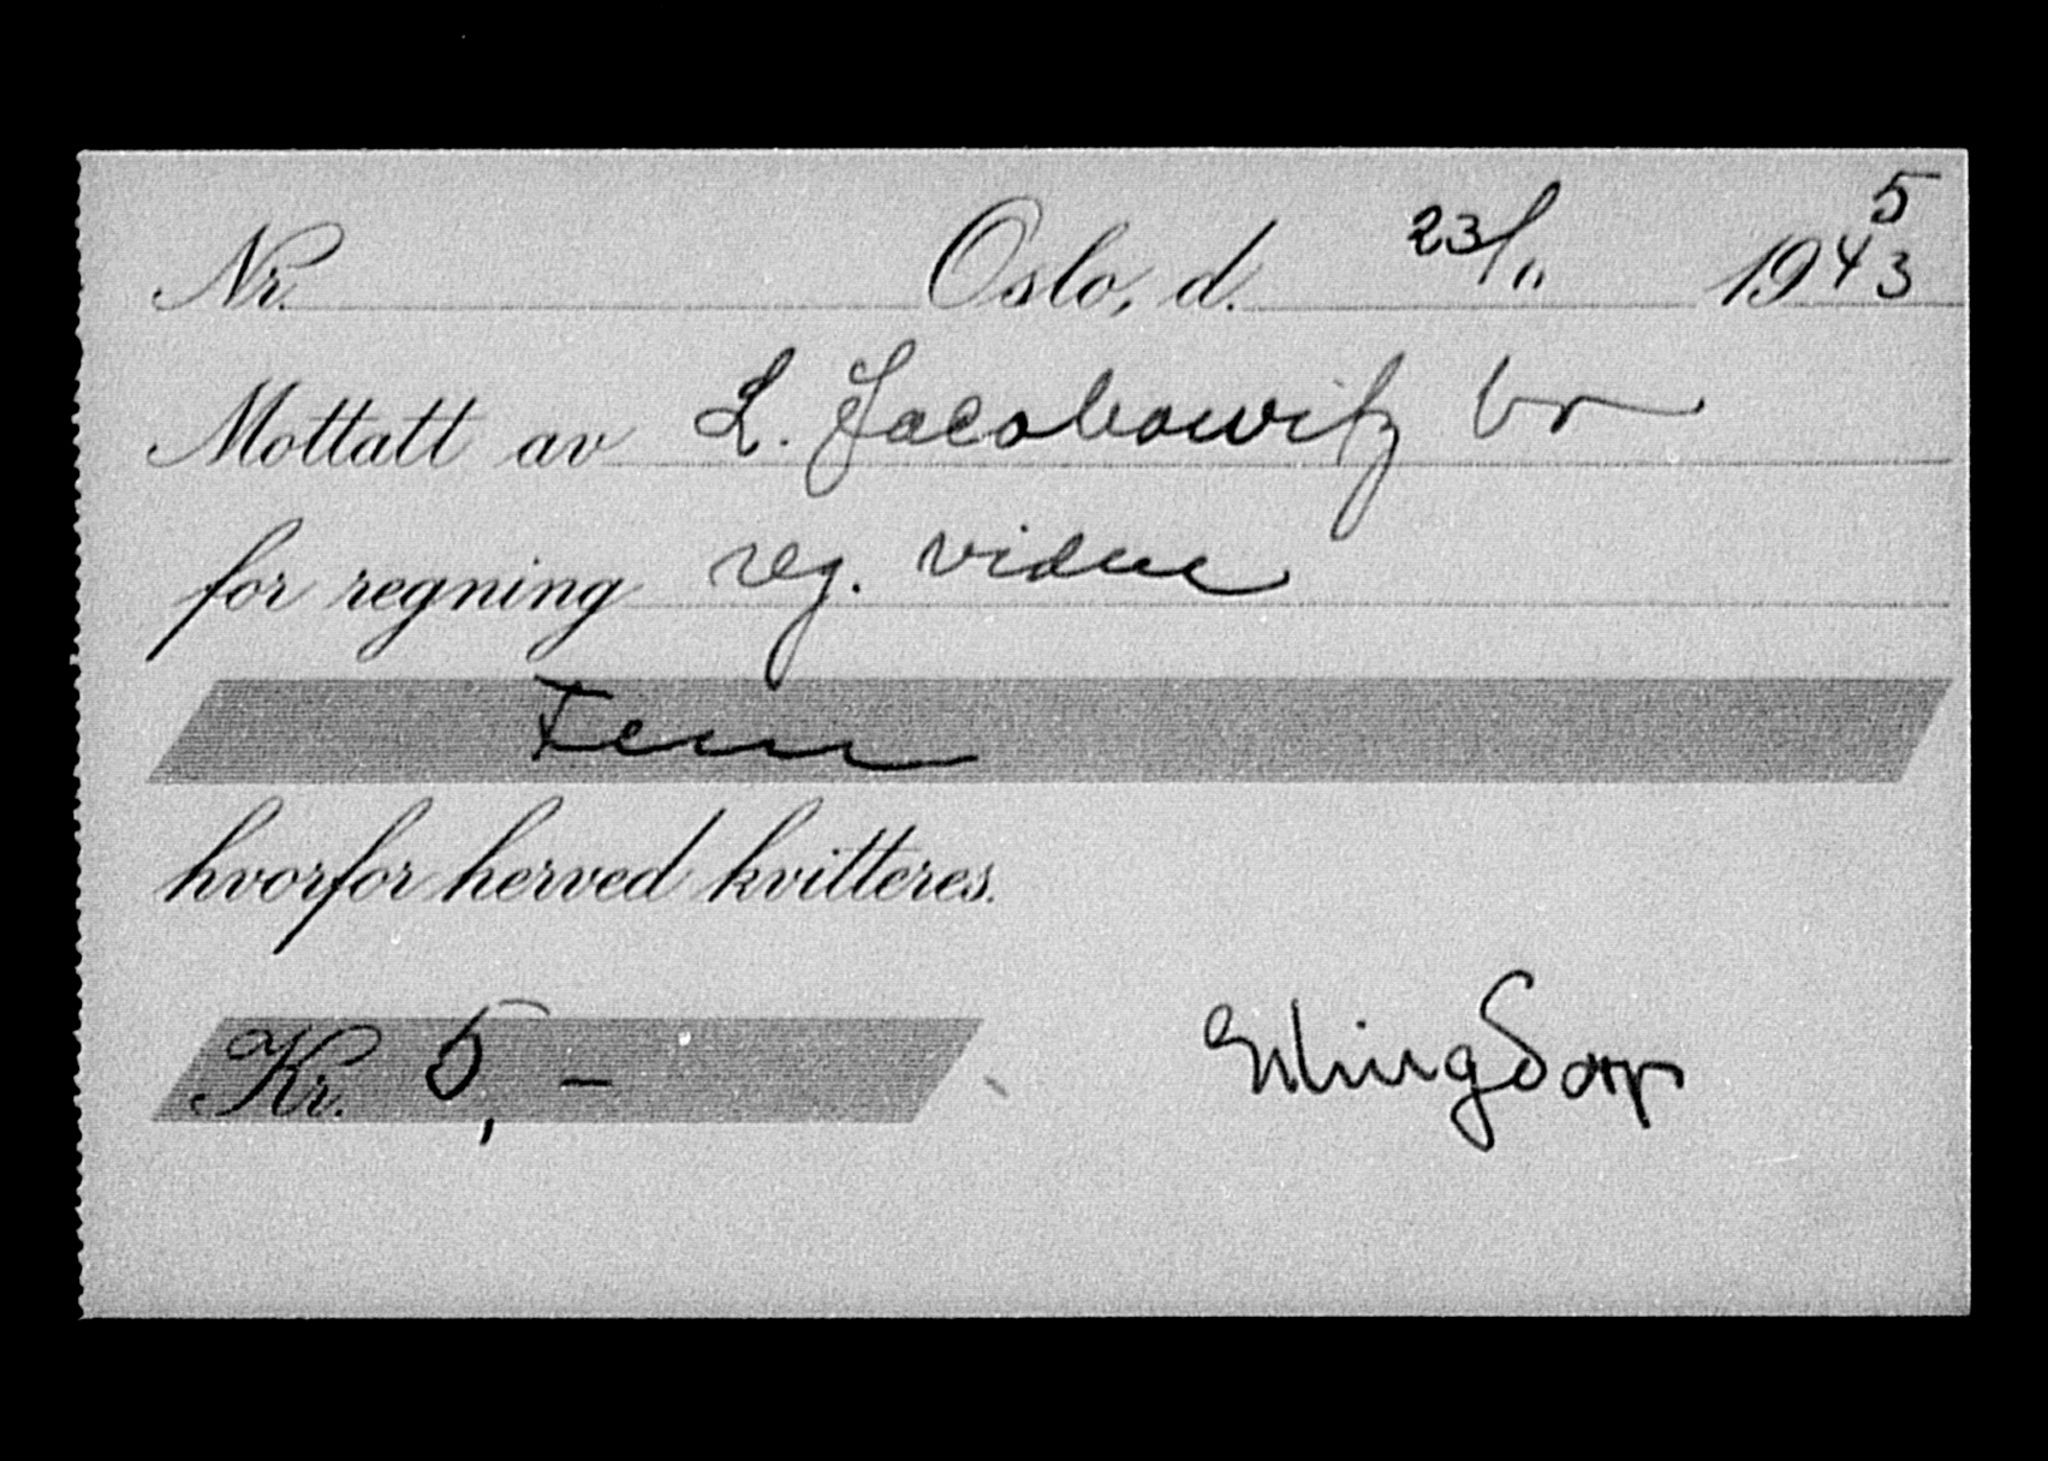 5
Nr. Oslo, d. 23/11 1943
Mottatt av L. Jacobowitz bo
for regning reg. vidne
Fem
hvorfor herved kvitteres.
Kr. 5,-